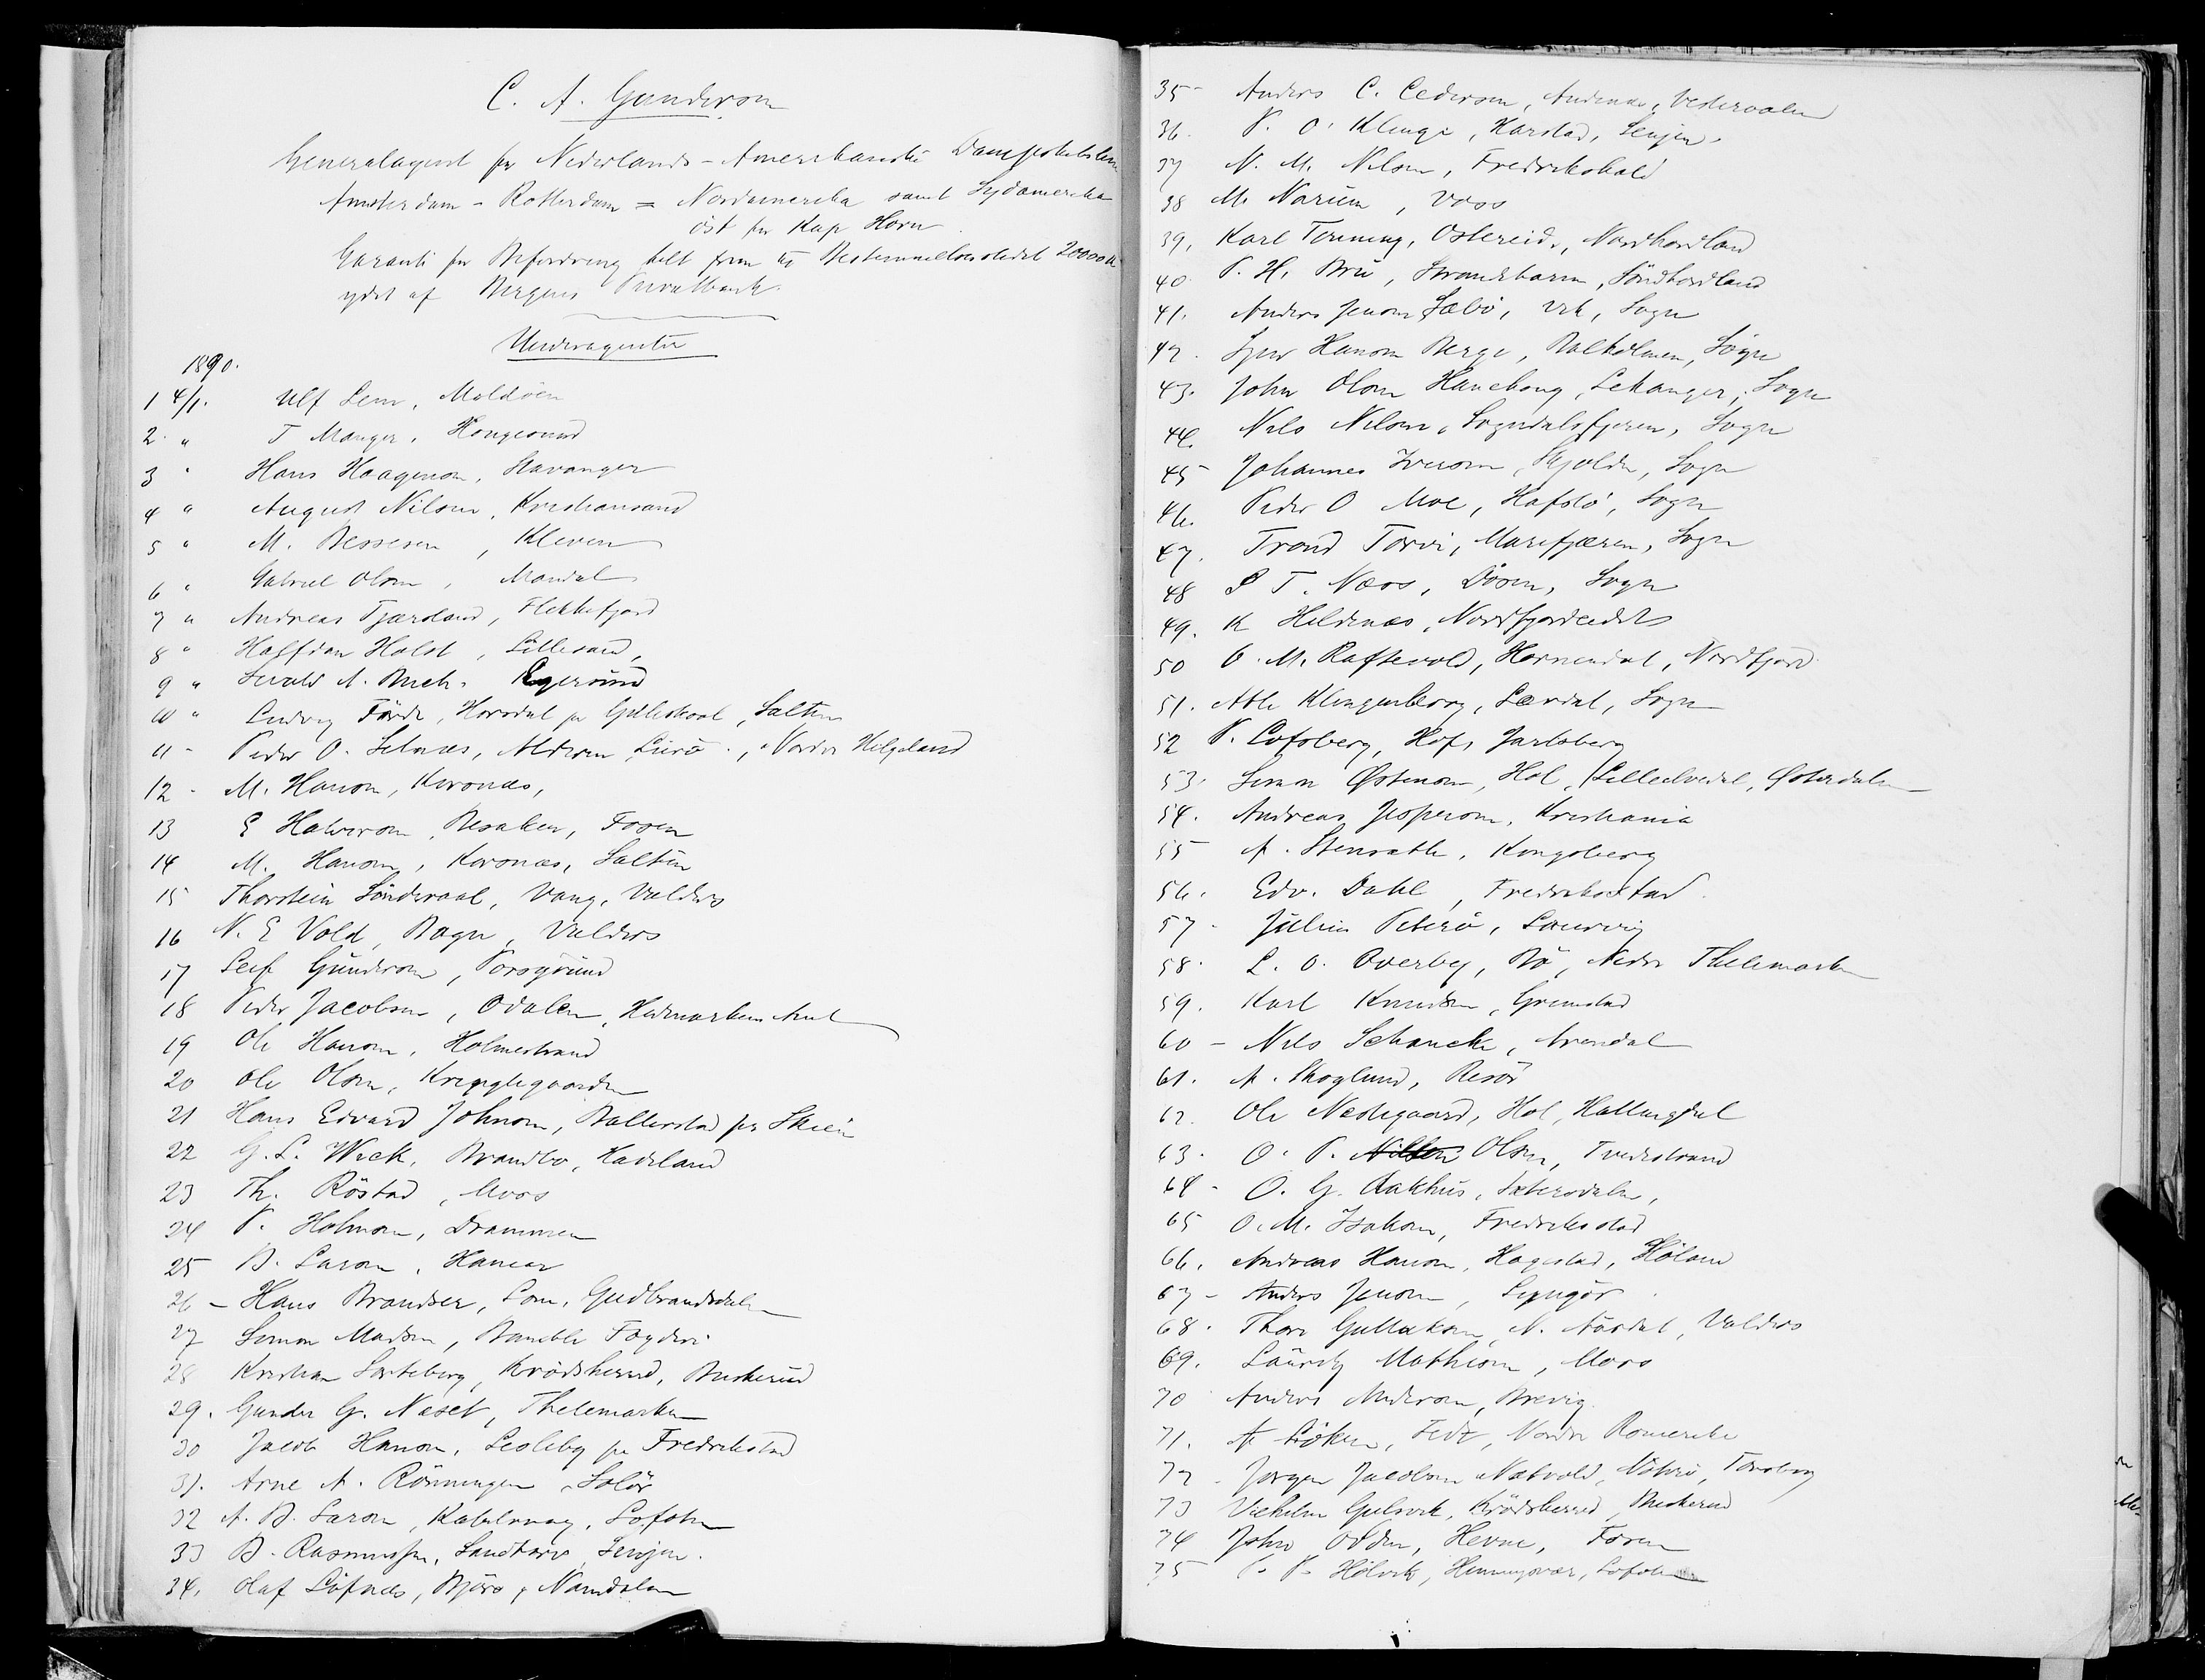 C. A. Gunderson
Generalagent for Nederlands-Amerikanske
Amsterdam - Rotterdam = Nordamerika samt Sydamerika
öst for Kap Horn
Garanti for Befordring helt frem til Bestemmelsesstedet 20000 Kr
ydet af Bergens Privatbank.
Underagenter
1890.
1 4/1. Ulf Lem, Moldöen
2 " T Manger, Haugesund
3 " Hans Haagenson, Stavanger
4 " August Nilsen, Kristiansand
5 " M. Bessesen, Kleven
6 " Gabriel Olsen, Mandal
7 " Andreas Tjærsland, Flekkefjord
8 " Halfdan Holst, Lillesand,
9 " A. Buch. Egersund
10 " Ludvig Förde, Horsdal pr Gilleskaal, Salten
11 - Peder O. Selnæs, Alderen, Lurö, Nordre Helgeland
12 - M. Hanson, Kvonæs,
13 E Halvorson, Besaker, Fosen
14 M. Hanson, Kvonæs, Salten
15 Thorstein Sönderaal, Vang, Valders
16 N. E Vold, Bagn, Valders
17 Leif Gunderson, Porsgrund
18 Peder Jacobsen, Odalen, Hedemarkens Amt
19 Ole Hanson, Holmestrand
20 Ole Olsen, Kringlegaarden
21 Hans Edvard Johnson, Ballestad pr Skien
22 G. L. Wick, Brandbo, Hadeland
23 Th. Röstad, Moss
24 P. Holmsen, Drammen
25 B. Larson, Hamar
26 - Hans Brandser, Lom, Gudbrandsdalen
27 Simon Madsen, Bamble Fogderi
28 Kristian Sorteberg, Krödsherred, Buskerud
29. Gunder G. Naset, Thelemarken
30 Jacob Hanson, pr Fredrikstad
31. Arne A. Rönningen, Solör
32 A. B. Larson, Kabelvaag, Lofoten
33 B. Rasmussen, Sandtorv, Senjen.
34. Olaf Löfnæs, Björö, Namdalen
35 - Anders C. Cederson, Andenæs, Vesteraalen
36. P. O. Klinge, Harstad, Senjen.
37 N. M. Nilsen, Fredrikshald
38 M. Narum, Voss
39. Karl Tenning, Ostereid, Nordhordland
40. P. H. Bru, Strandebarm, Söndhordland
41. Anders Jenson Sæbö, Vik, Sogn
42. Sjur Hanson Berge, Balholmen, Sogn
43. John Olson Haukong, Lekanger, Sogn
44. Nils Nilson, Sogndalsfjæren, Sogn
45 - Johannes Iverson, Skjolden, Sogn
46. Peder O Moe, Hafslo, Sogn
47. Trond Torvi, Marifjæren, Sogn
48 P T. Næss, Dösen, Sogn
49. K Heldenæs, Nordfjordeidet
50 O. M. Raftevold, Hornendal, Nordfjord
51. Atle Klingenberg, Lærdal, Sogn
52 P. Lofsberg, Hof, Jarlsberg
53. Simen Østenson, Hol, Lilleelvedal, Østerdalen
54. Andreas Jesperson, Kristiania
55 A. Stensæth, Kongsberg
56. Edv. Dahl, Fredrikstad.
57 - Julius Peterö, Laurvig
58. L. O. Overby, Bö, Nedre Thelemarken
59. Karl Knudsen, Grimstad
60 - Nils Schancke, Arendal
61. A. Skoglund, Risör
62. Ole Nestegaard, Hol, Hallingdal
63. O. P. Nilsen Olsen, Tvedestrand
64 - O. G. Aakhus, Sætersdalen,
65 O. M. Isaksen, Fredrikstad
66. Andreas Hanson, Hagestad, Höland
67 - Anders Jenson, Lyngör.
68. Thore Gullikson, N. Aurdal, Valders
69. Lauritz Mathison, Moss
70 Anders Anderson, Brevig
71. A Löken, Fedt, Nordre Romerike
72. Jorgen Jacobsen Natvold, Nöterö, Tönsberg
73 Vilhelm Gulsvik, Krödsherred, Buskerud
74 John Odden, Hevne, Fosen
75 P. P. Hölvik, Henningsvær, Lofoten